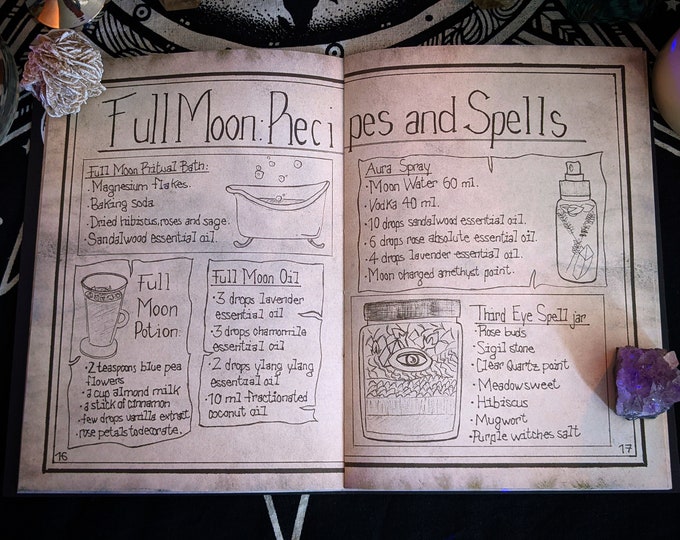 Full Moon: Recipes and Spells
Full Moon Ritual Bath:
• Magnesium flakes.
• Baking soda.
• Dried hibiscus, roses and sage.
• Sandalwood essential oil.
Full
Moon
Potion:
• 2 teaspoons blue pea
flowers
• a cup almond milk
• a stick of cinnamon
• few drops vanilla extract
• rose petals to decorate.
Full Moon Oil
• 3 drops lavender
essential oil
• 3 drops chamomile
essential oil
• 2 drops ylang ylang
essential oil
• 10 ml fractionated
coconut oil
16
Aura Spray
• Moon Water 60 ml.
• Vodka 40 ml.
• 10 drops sandalwood essential oil.
• 6 drops rose absolute essential oil.
• 4 drops lavender essential oil.
• Moon charged amethyst point.
Third Eye Spell jar
• Rose buds
• Sigil stone
• Clear Quartz point
• Meadowsweet
• Hibiscus
• Mugwort
• Purple witches salt
17